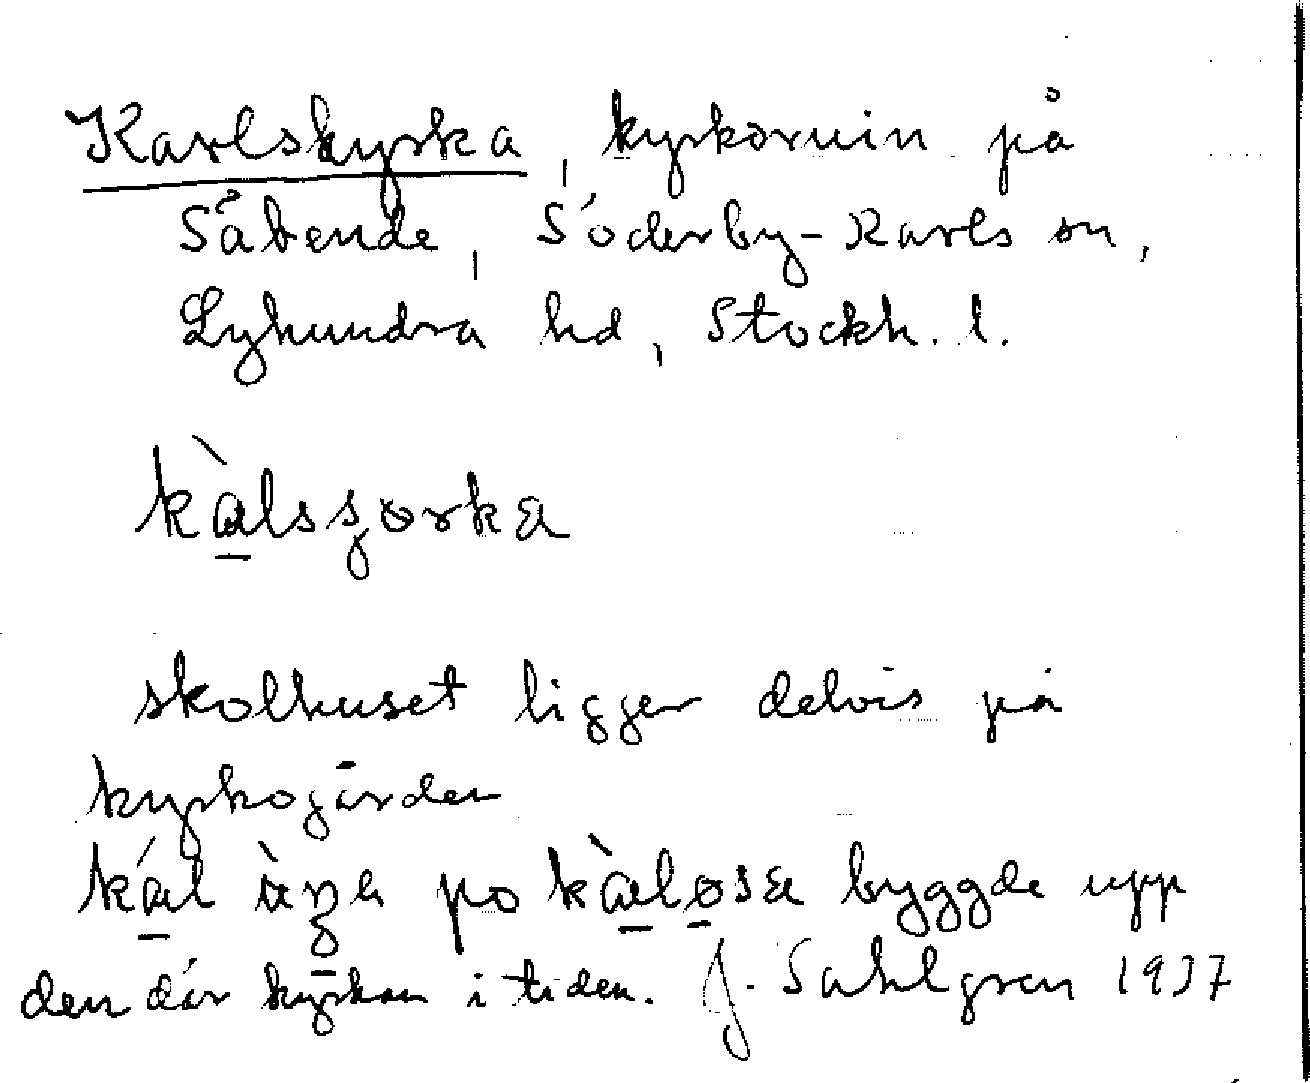 Karlskyrka, kyrkoruin på
Såbende, Söderby-Karls sn,
Lyhundra hd, Stockh. l.
kàlsşorka
skolhuset ligger delvis på
kyrkogården
kál po kàlosa byggde upp
den där kyrkan i tiden. J. Sahlgren 1937